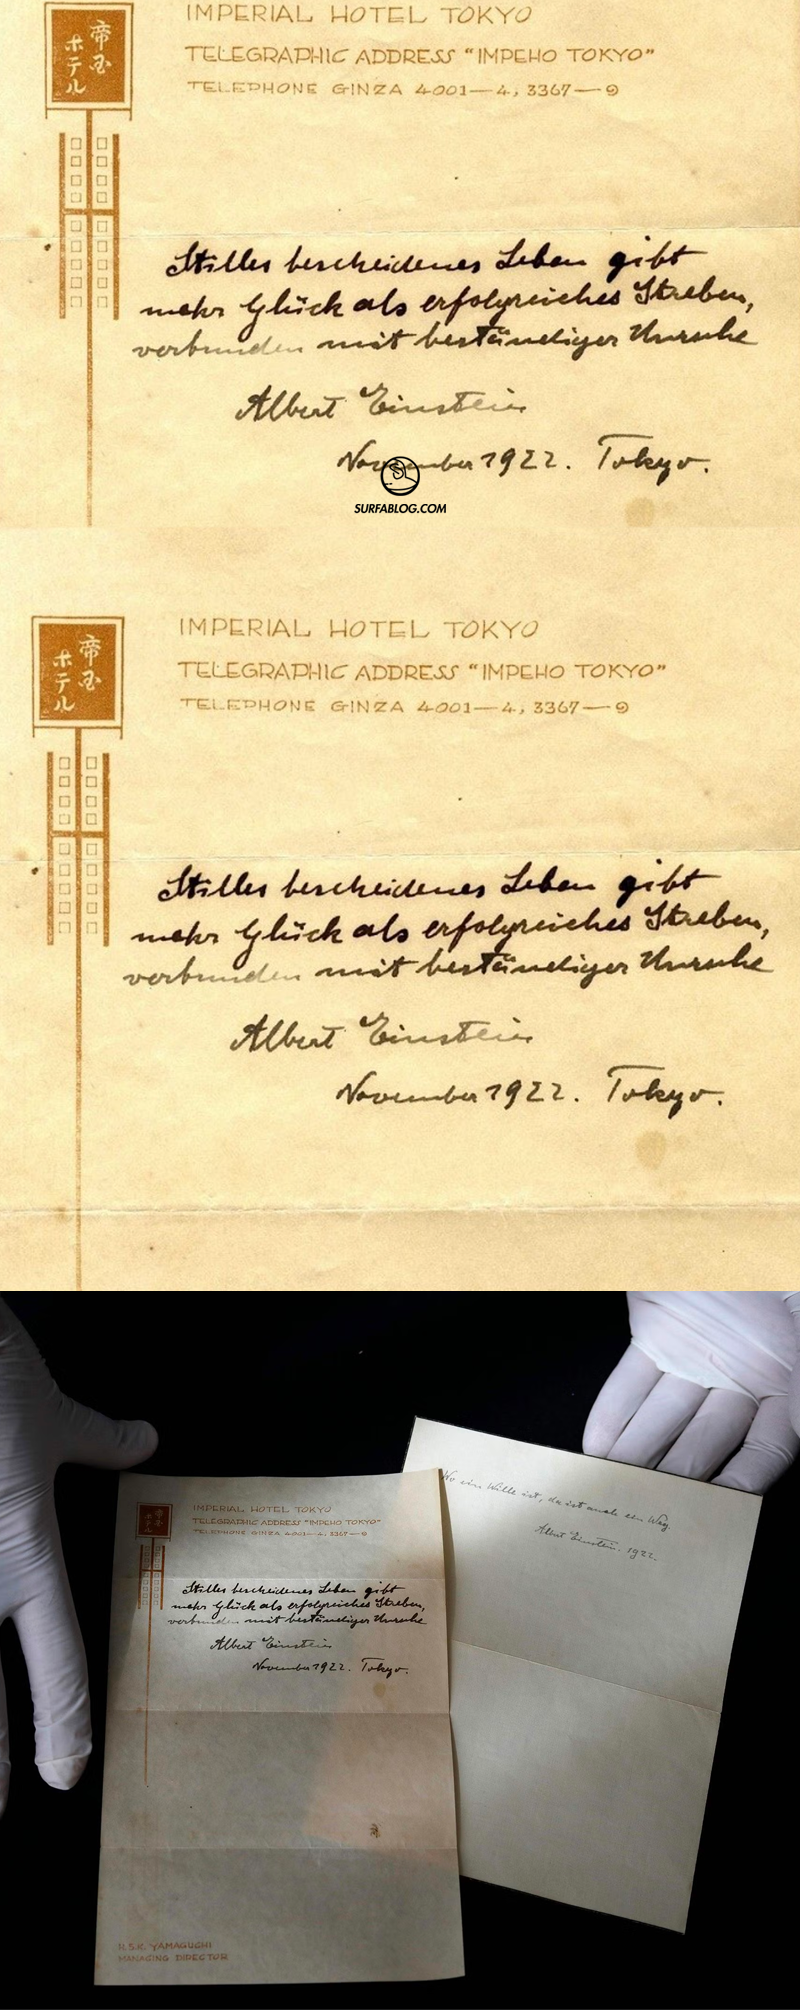 帝国
ホテル
IMPERIAL HOTEL TOKYO
TELEGRAPHIC ADDRESS “IMPEHO TOKYO”
TELEPHONE GINZA 4001—4, 3367—9
Stilles bescheidenes Leben gibt
mehr Glück als erfolgreiches Streben,
verbunden mit beständiger Unruhe
Albert Einstein
November 1922. Tokyo.
SURFABLOG.COM
帝国
ホテル
IMPERIAL HOTEL TOKYO
TELEGRAPHIC ADDRESS “IMPEHO TOKYO”
TELEPHONE GINZA 4001—4, 3367—9
Stilles bescheidenes Leben gibt
mehr Glück als erfolgreiches Streben,
verbunden mit beständiger Unruhe
Albert Einstein
November 1922. Tokyo.
帝国
ホテル
IMPERIAL HOTEL TOKYO
TELEGRAPHIC ADDRESS “IMPEHO TOKYO”
TELEPHONE GINZA 4001—4, 3367—9
Stilles bescheidenes Leben gibt
mehr Glück als erfolgreiches Streben,
verbunden mit beständiger Unruhe
Albert Einstein
November 1922. Tokyo.
YAMAGUCHI
MANAGING DIRECTOR
Wo ein Wille ist, da ist auch ein Weg.
Albert Einstein. 1922.